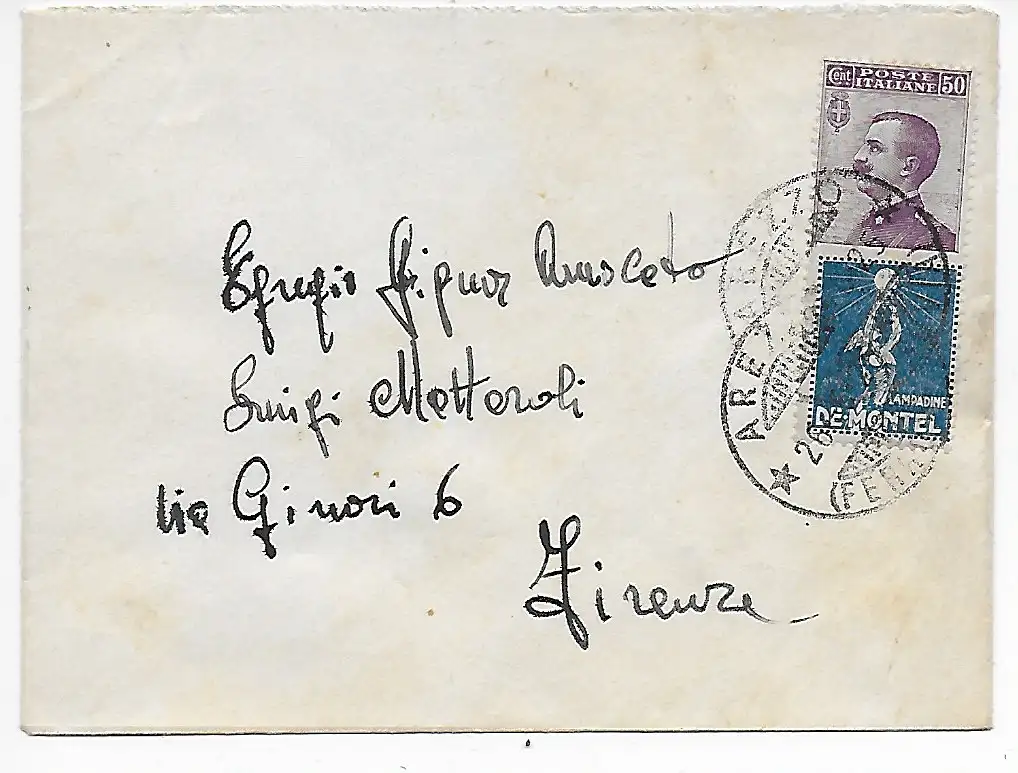 Cent POSTE ITALIANE 50
LAMPADINE
DE-MONTEL
AREZZO
26
(FERR
Egregio Signor
Luigi
Via Ginori 6
Firenze